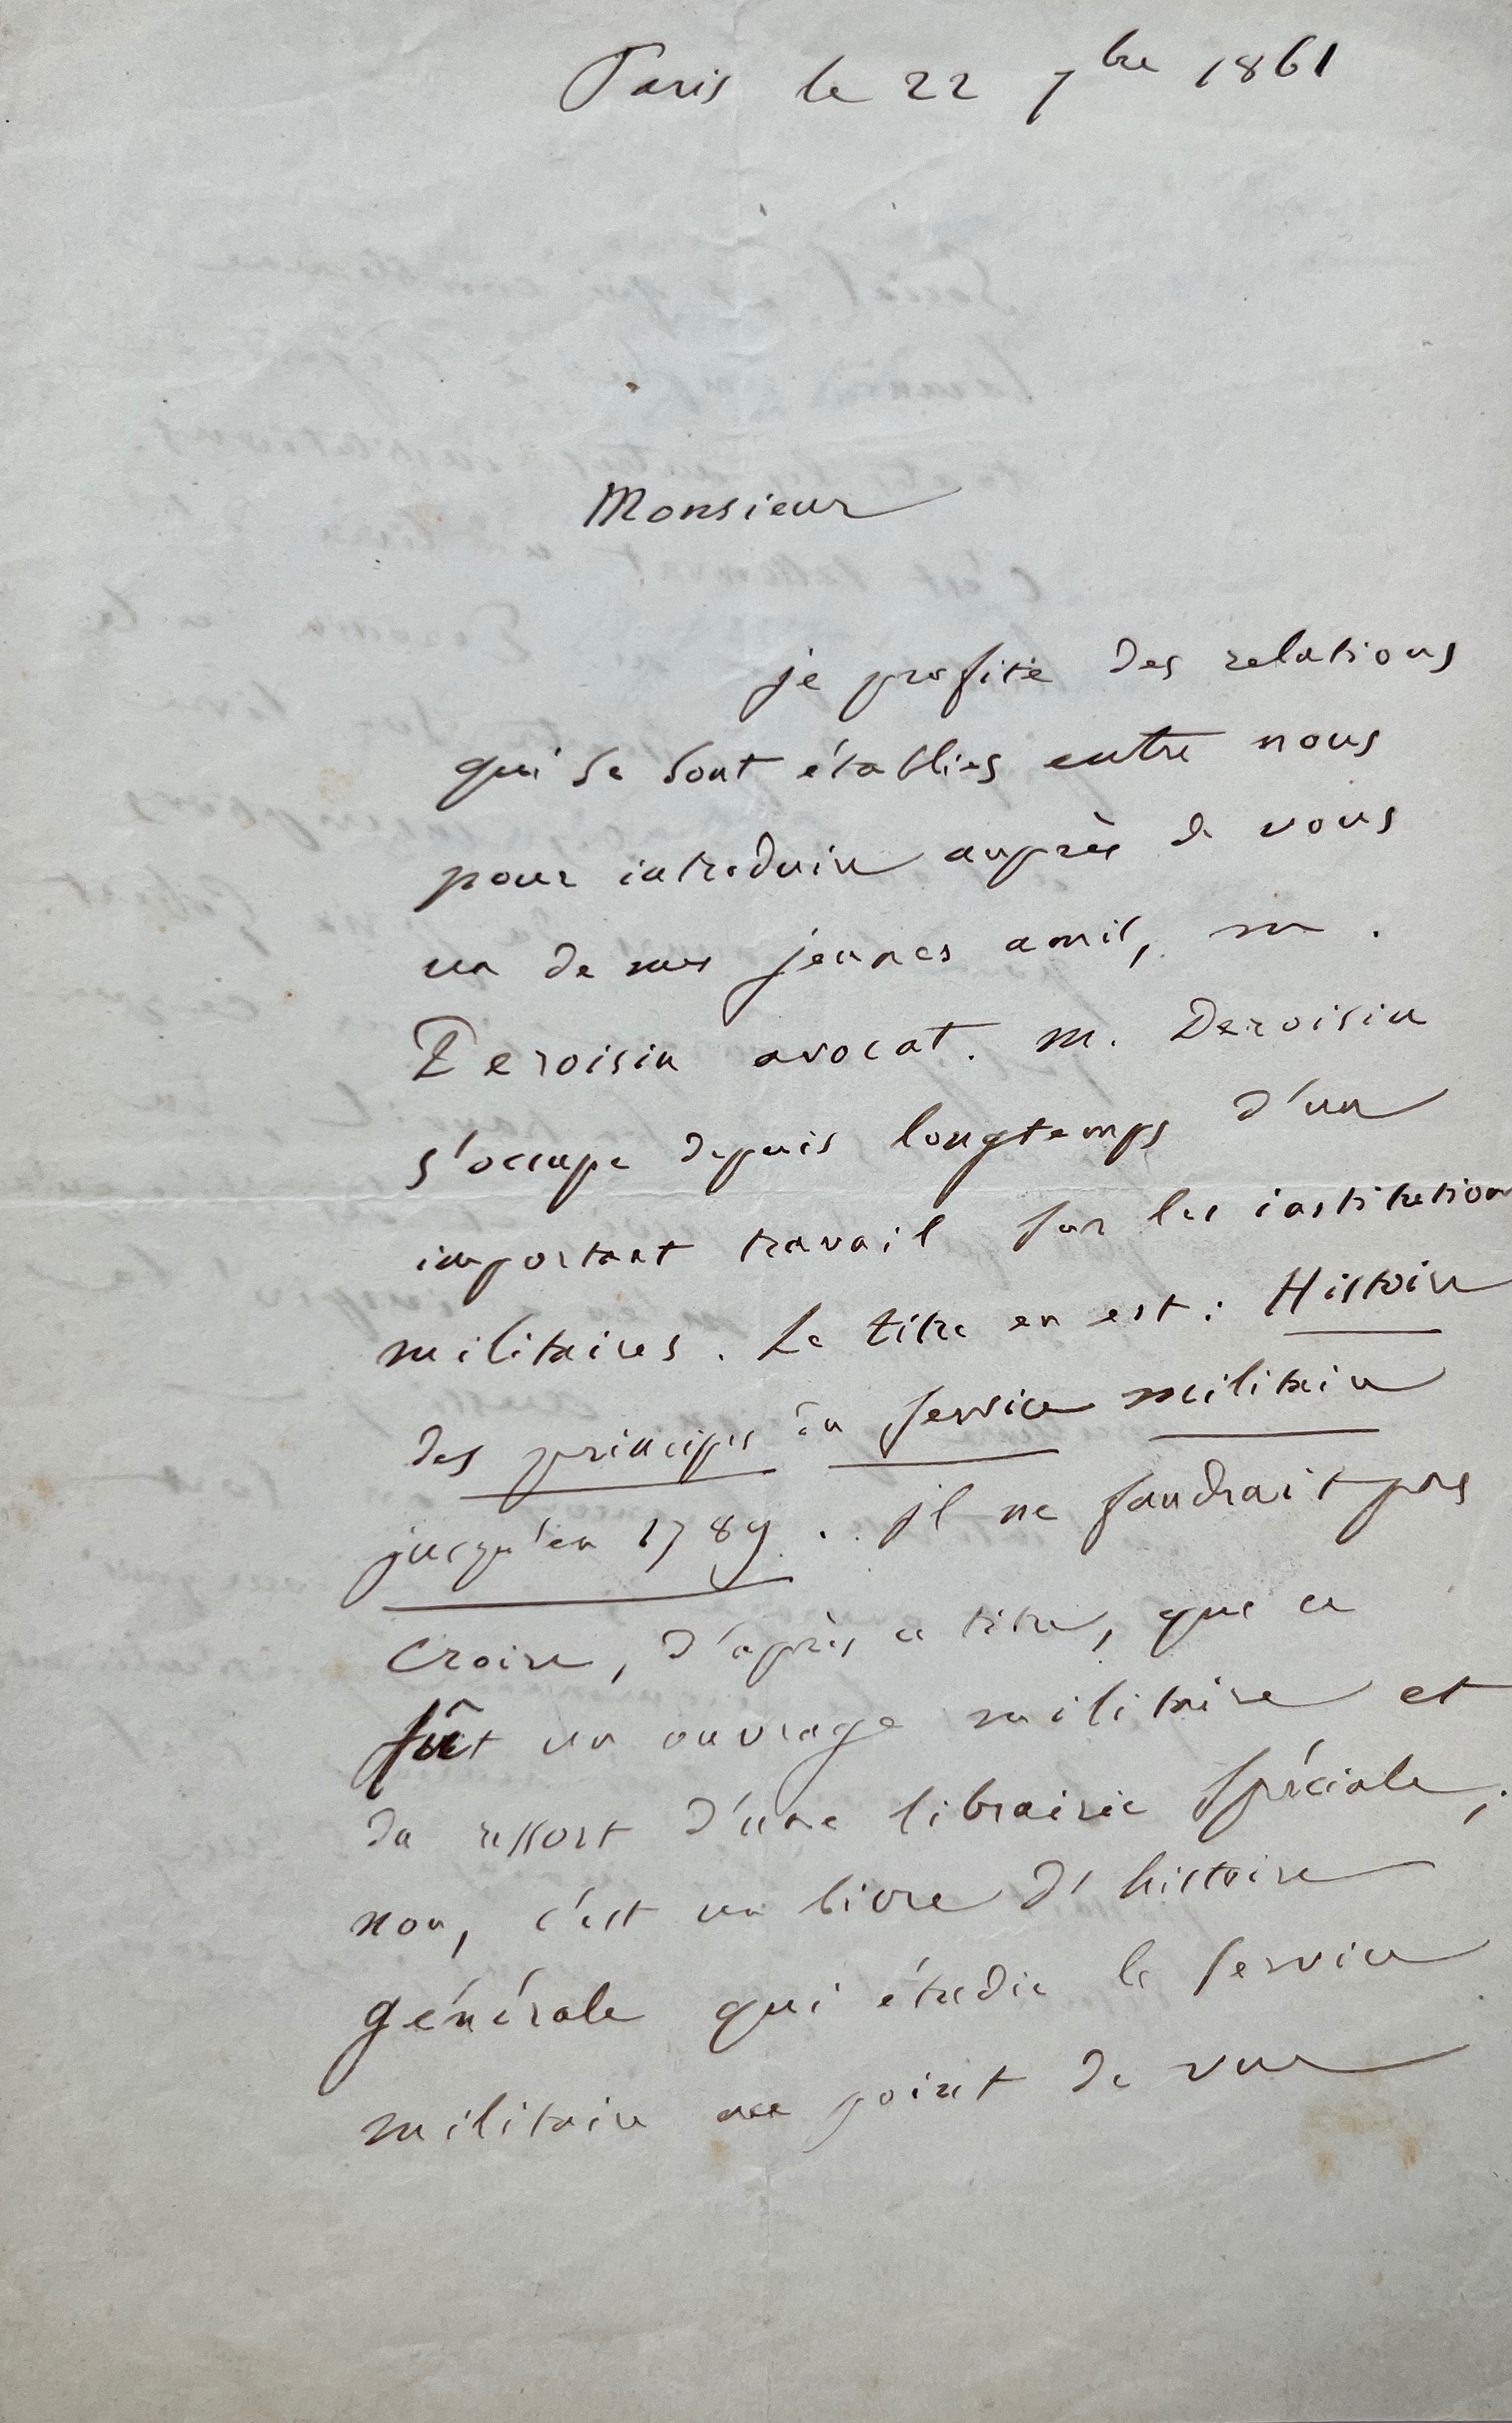 Paris le 22 7bre 1861
Monsieur
je profite des relations
qui se sont établies entre nous
pour introduire auprès de vous
un de mes jeunes amis, m.
Deroisin avocat. M. Deroisin
s'occupe depuis longtemps d'un
important travail sur les institutions
militaires. Le titre en est : Histoire
des principes du service militaire
jusqu'en 1789. il ne faudrait pas
croire, d'après ce titre, que ce
fût un ouvrage militaire et
du ressort d'une librairie spéciale;
non, c'est un livre d'histoire
générale qui étudie le service
militaire au point de vue